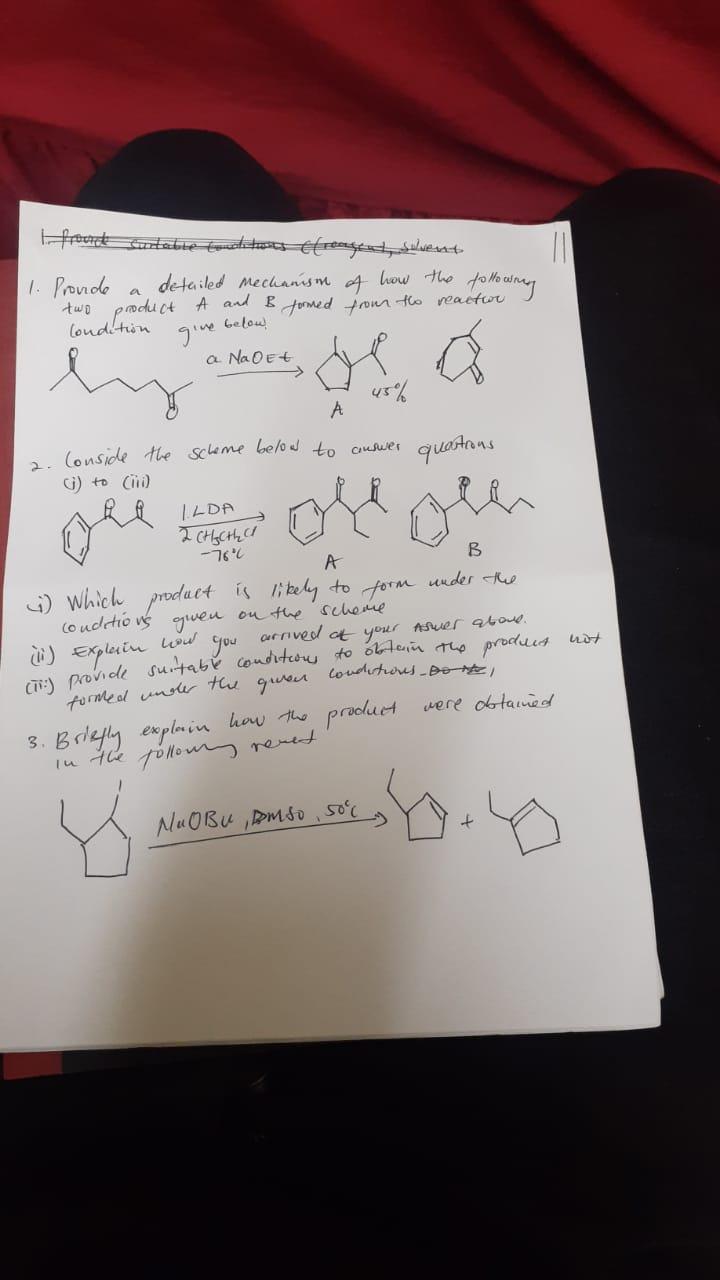 1. Provide suitable conditions (reagent, solvent
1. Provide a detailed mechanism of how the following
two product A and B formed from the reaction
Condition give below!
a. NaOEt
45%
A
2. Conside the scheme below to answer questions
(i) to (iii)
1. LDA
2 CH3CH2Cl
-76°C
A
B
i) Which product is likely to form under the
conditions given on the scheme
ii) Explain how you arrived at your Aswer above.
(iii) provide suitable conditions to obtain the product not
formed under the given conditions.
3. Briefly explain how the product were obtained
in the following
NaOBu, DMSO, 50°C
+